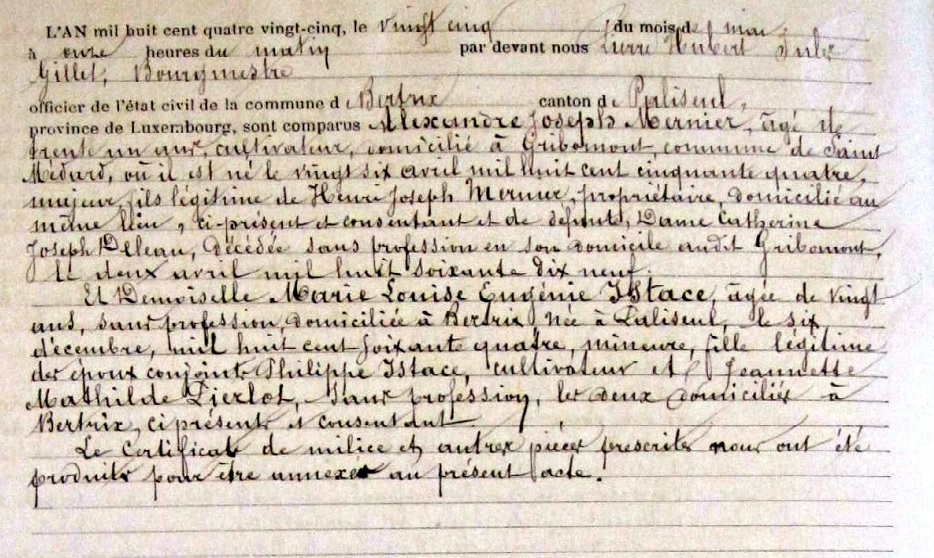 L'AN mil huit cent quatre vingt-cinq, le vingt cinq du mois de mai
à onze heures du matin par devant nous Pierre Hubert Jules
Gillet, Bourgmestre
officier de l'état civil de la commune d Bertrix canton d Paliseul,
province de Luxembourg, sont comparus Alexandre Joseph Mernier, âgé de
trente un ans, cultivateur, domicilié à Gribomont, commune de Saint
Médard, où il est né le vingt six avril mil huit cent cinquante quatre,
majeur, fils légitime de Henri Joseph Mernier, propriétaire, domicilié au
même lieu, ci-présent et consentant et de défunte, Dame Catherine
Joseph Déleau, décédée sans profession en son domicile audit Gribomont,
le deux avril mil huit soixante dix neuf.
Et Demoiselle Marie Louise Eugénie Istace, âgée de vingt
ans, sans profession, domiciliée à Bertrix, née à Paliseul, le six
décembre, mil huit cent soixante quatre, mineure, fille légitime
des époux conjoints Philippe Istace, cultivateur et Jeannette
Mathilde Pierlot, sans profession, les deux domiciliés à
Bertrix, ci présents et consentant.
Le Certificat de milice et autres pièces prescrites nous ont été
produits pour être annexés au présent acte.